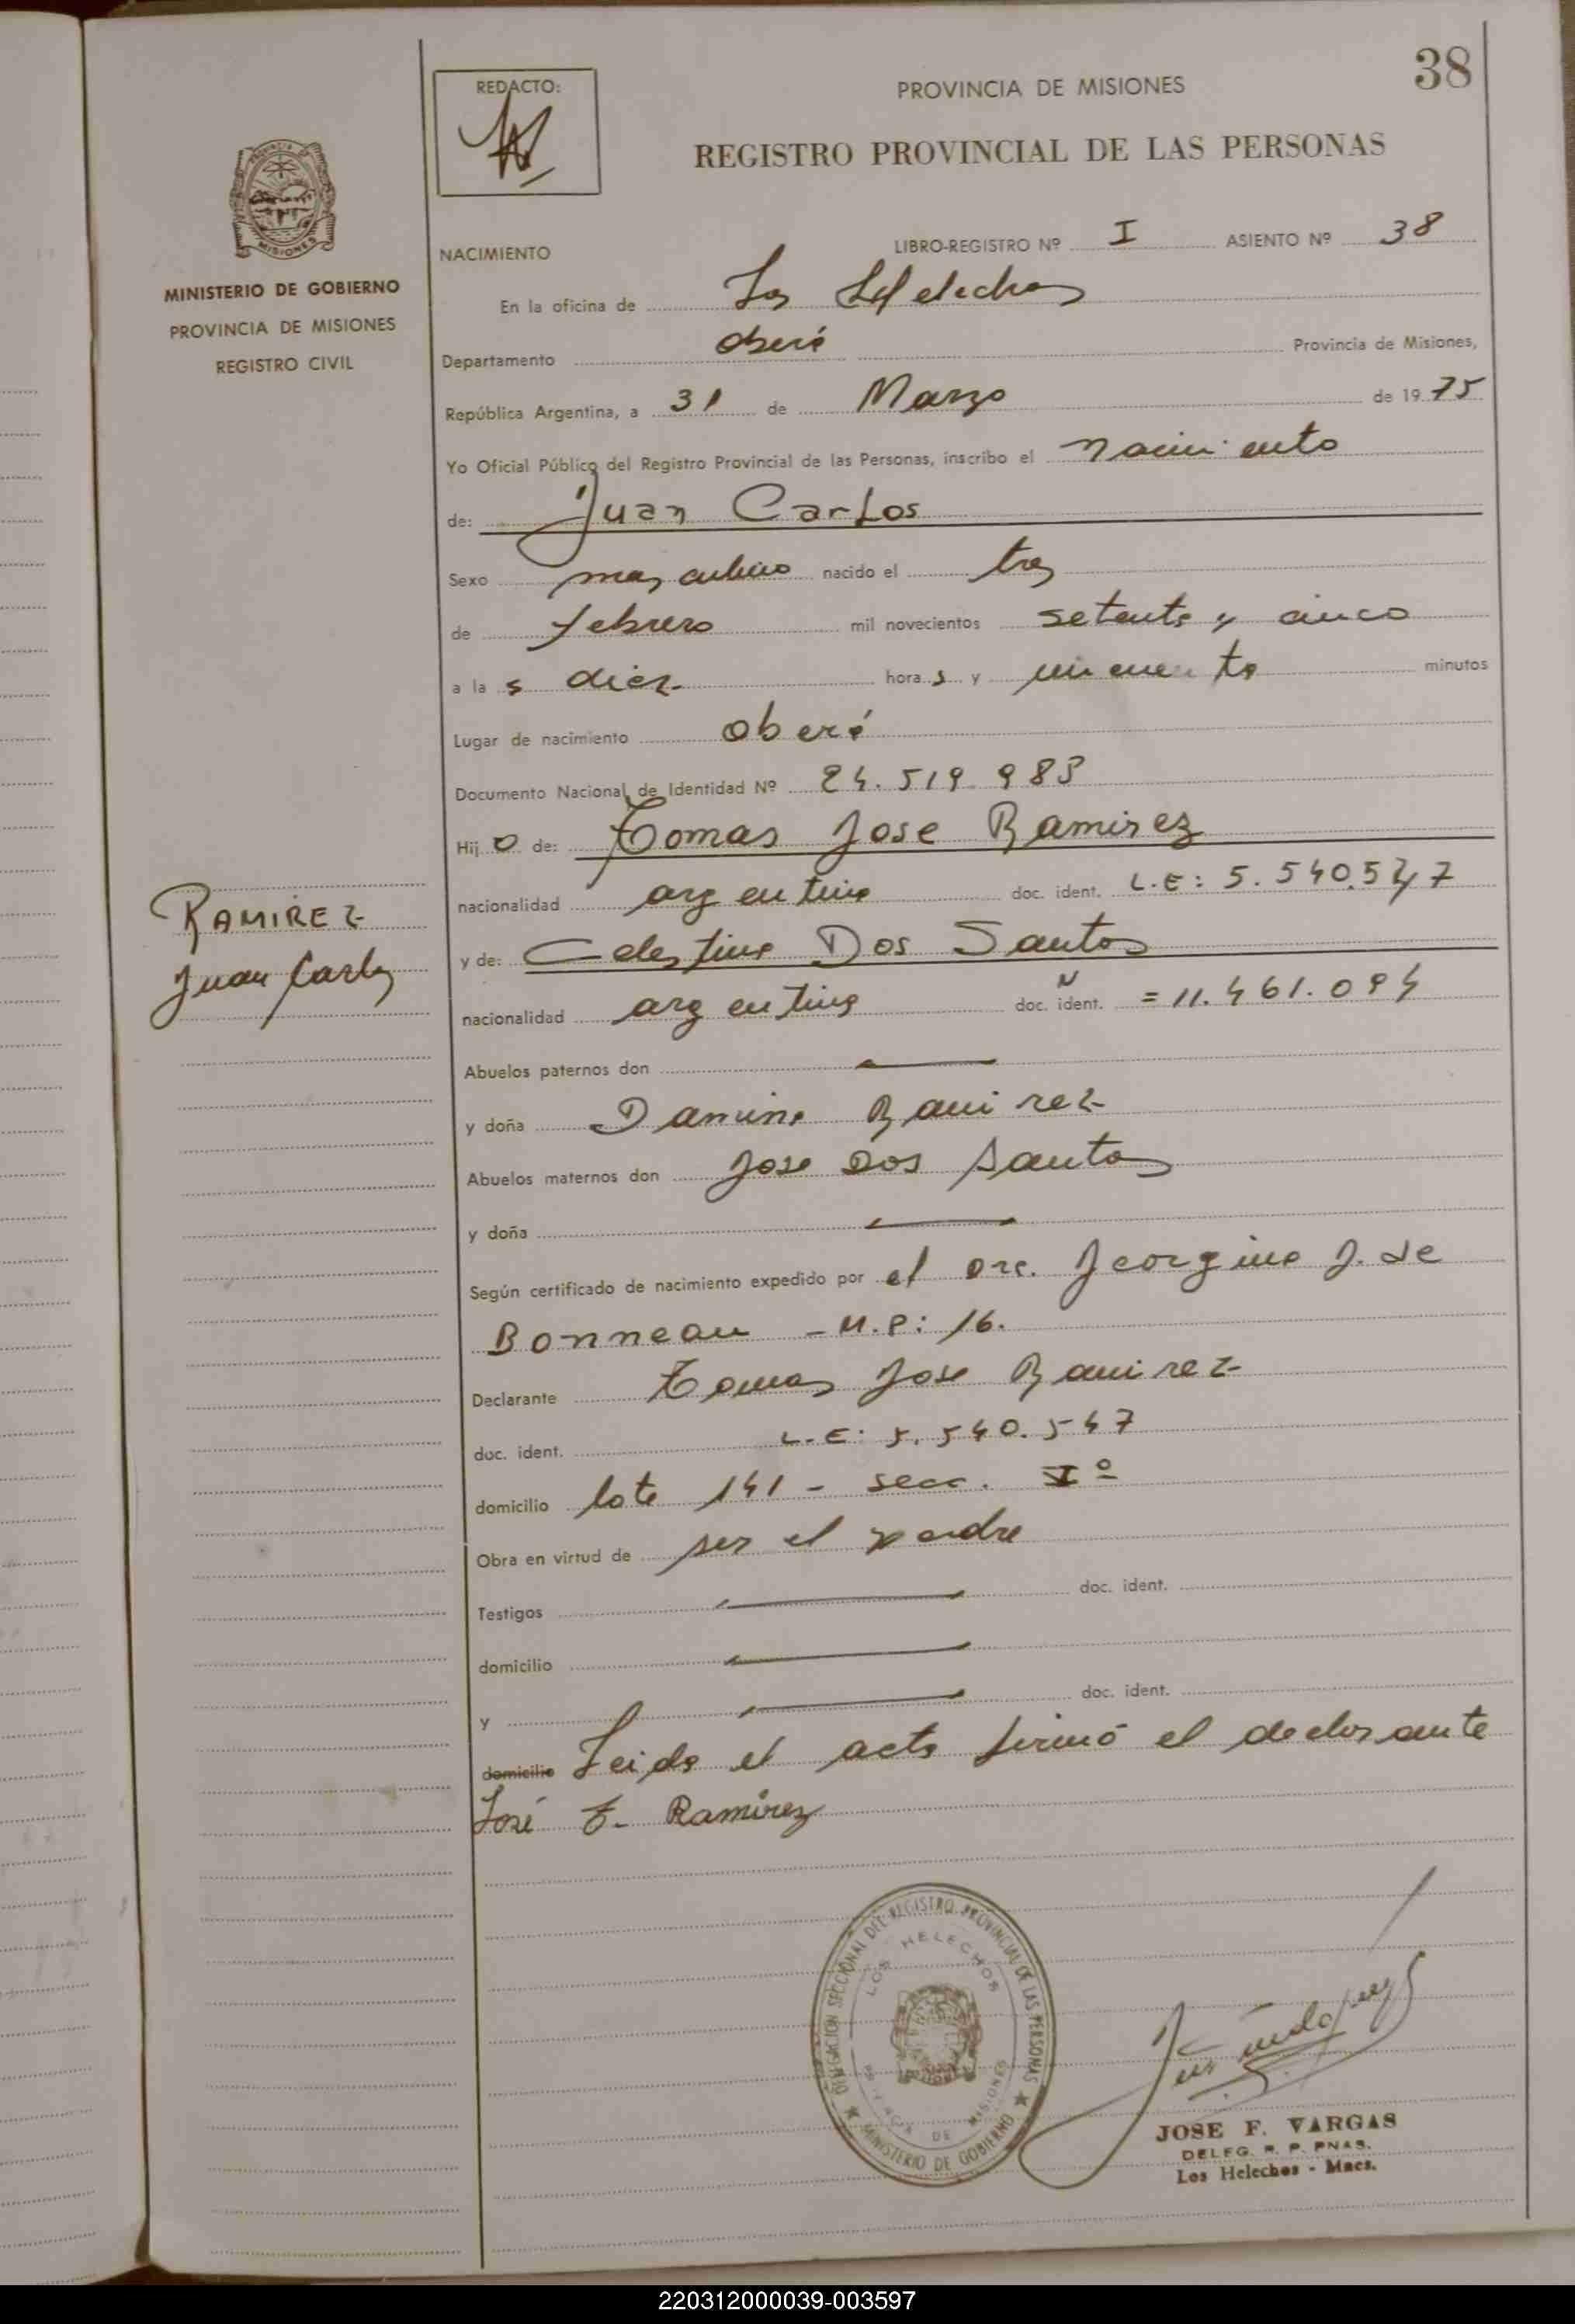 38
REDACTO:
PROVINCIA DE MISIONES
REGISTRO PROVINCIAL DE LAS PERSONAS
MINISTERIO DE GOBIERNO
PROVINCIA DE MISIONES
REGISTRO CIVIL
NACIMIENTO LIBRO-REGISTRO Nº I ASIENTO Nº 38
En la oficina de Los Helechos
Departamento Oberá Provincia de Misiones,
República Argentina, a 31 de Marzo de 1975
Yo Oficial Público del Registro Provincial de las Personas, inscribo el nacimiento
de: Juan Carlos
Sexo masculino nacido el tres
de febrero mil novecientos setenta y cinco
a las diez horas y cincuenta minutos
Lugar de nacimiento Oberá
Documento Nacional de Identidad Nº 24.519.983
Hijo de: Tomas Jose Ramirez
nacionalidad argentina doc. ident. L.E: 5.540.547
RAMIREZ
Juan Carlos
y de: Celestina Dos Santos
nacionalidad argentina doc. ident. = 11.461.094
Abuelos paternos don
y doña Ramirez
Abuelos maternos don Jose Dos Santos
y doña
Según certificado de nacimiento expedido por el Dra. Jeorgina J. de
Bonneau - M.P: 16.
Declarante Tomas Jose Ramirez
doc. ident. L.E: 5.540.547
domicilio lote 141 - secc.
Obra en virtud de ser el padre
Testigos doc. ident.
domicilio
y doc. ident.
domicilio Leida el acta firmó el declarante
José T. Ramirez
DELEGACION SECCIONAL DEL REGISTRO PROVINCIAL DE LAS PERSONAS
LOS HELECHOS
PROVINCIA DE MISIONES
MINISTERIO DE GOBIERNO
JOSE F. VARGAS
DELEG. R. P. PNAS.
Los Helechos - Mnes.
220312000039-003597